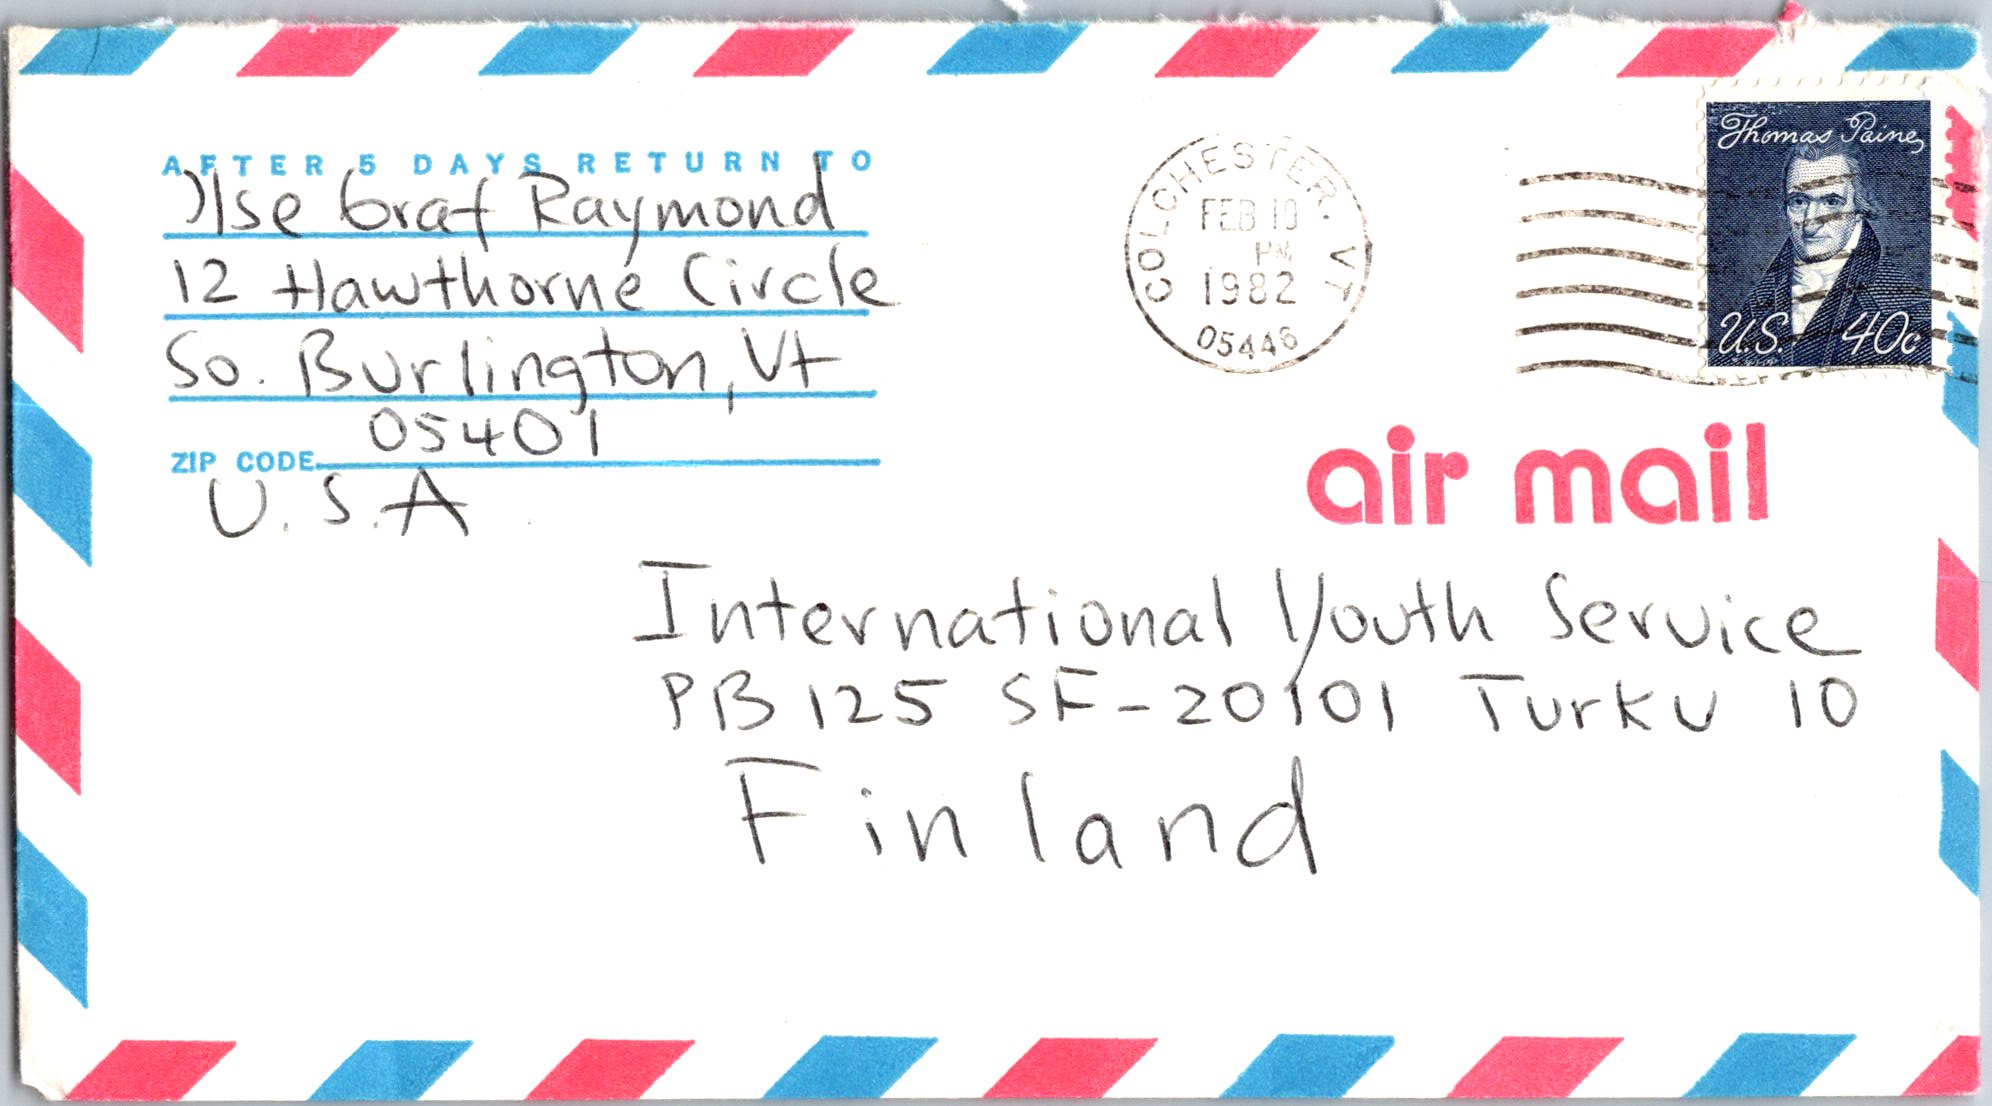 AFTER 5 DAYS RETURN TO
Ilse Graf Raymond
12 Hawthorne Circle
So. Burlington, Vt
05401
ZIP CODE
U.S.A
COLCHESTER. VT
FEB 10
PM
1982
05446
Thomas Paine
U.S. 40c
air mail
International Youth Service
PB 125 SF-20101 Turku 10
Finland